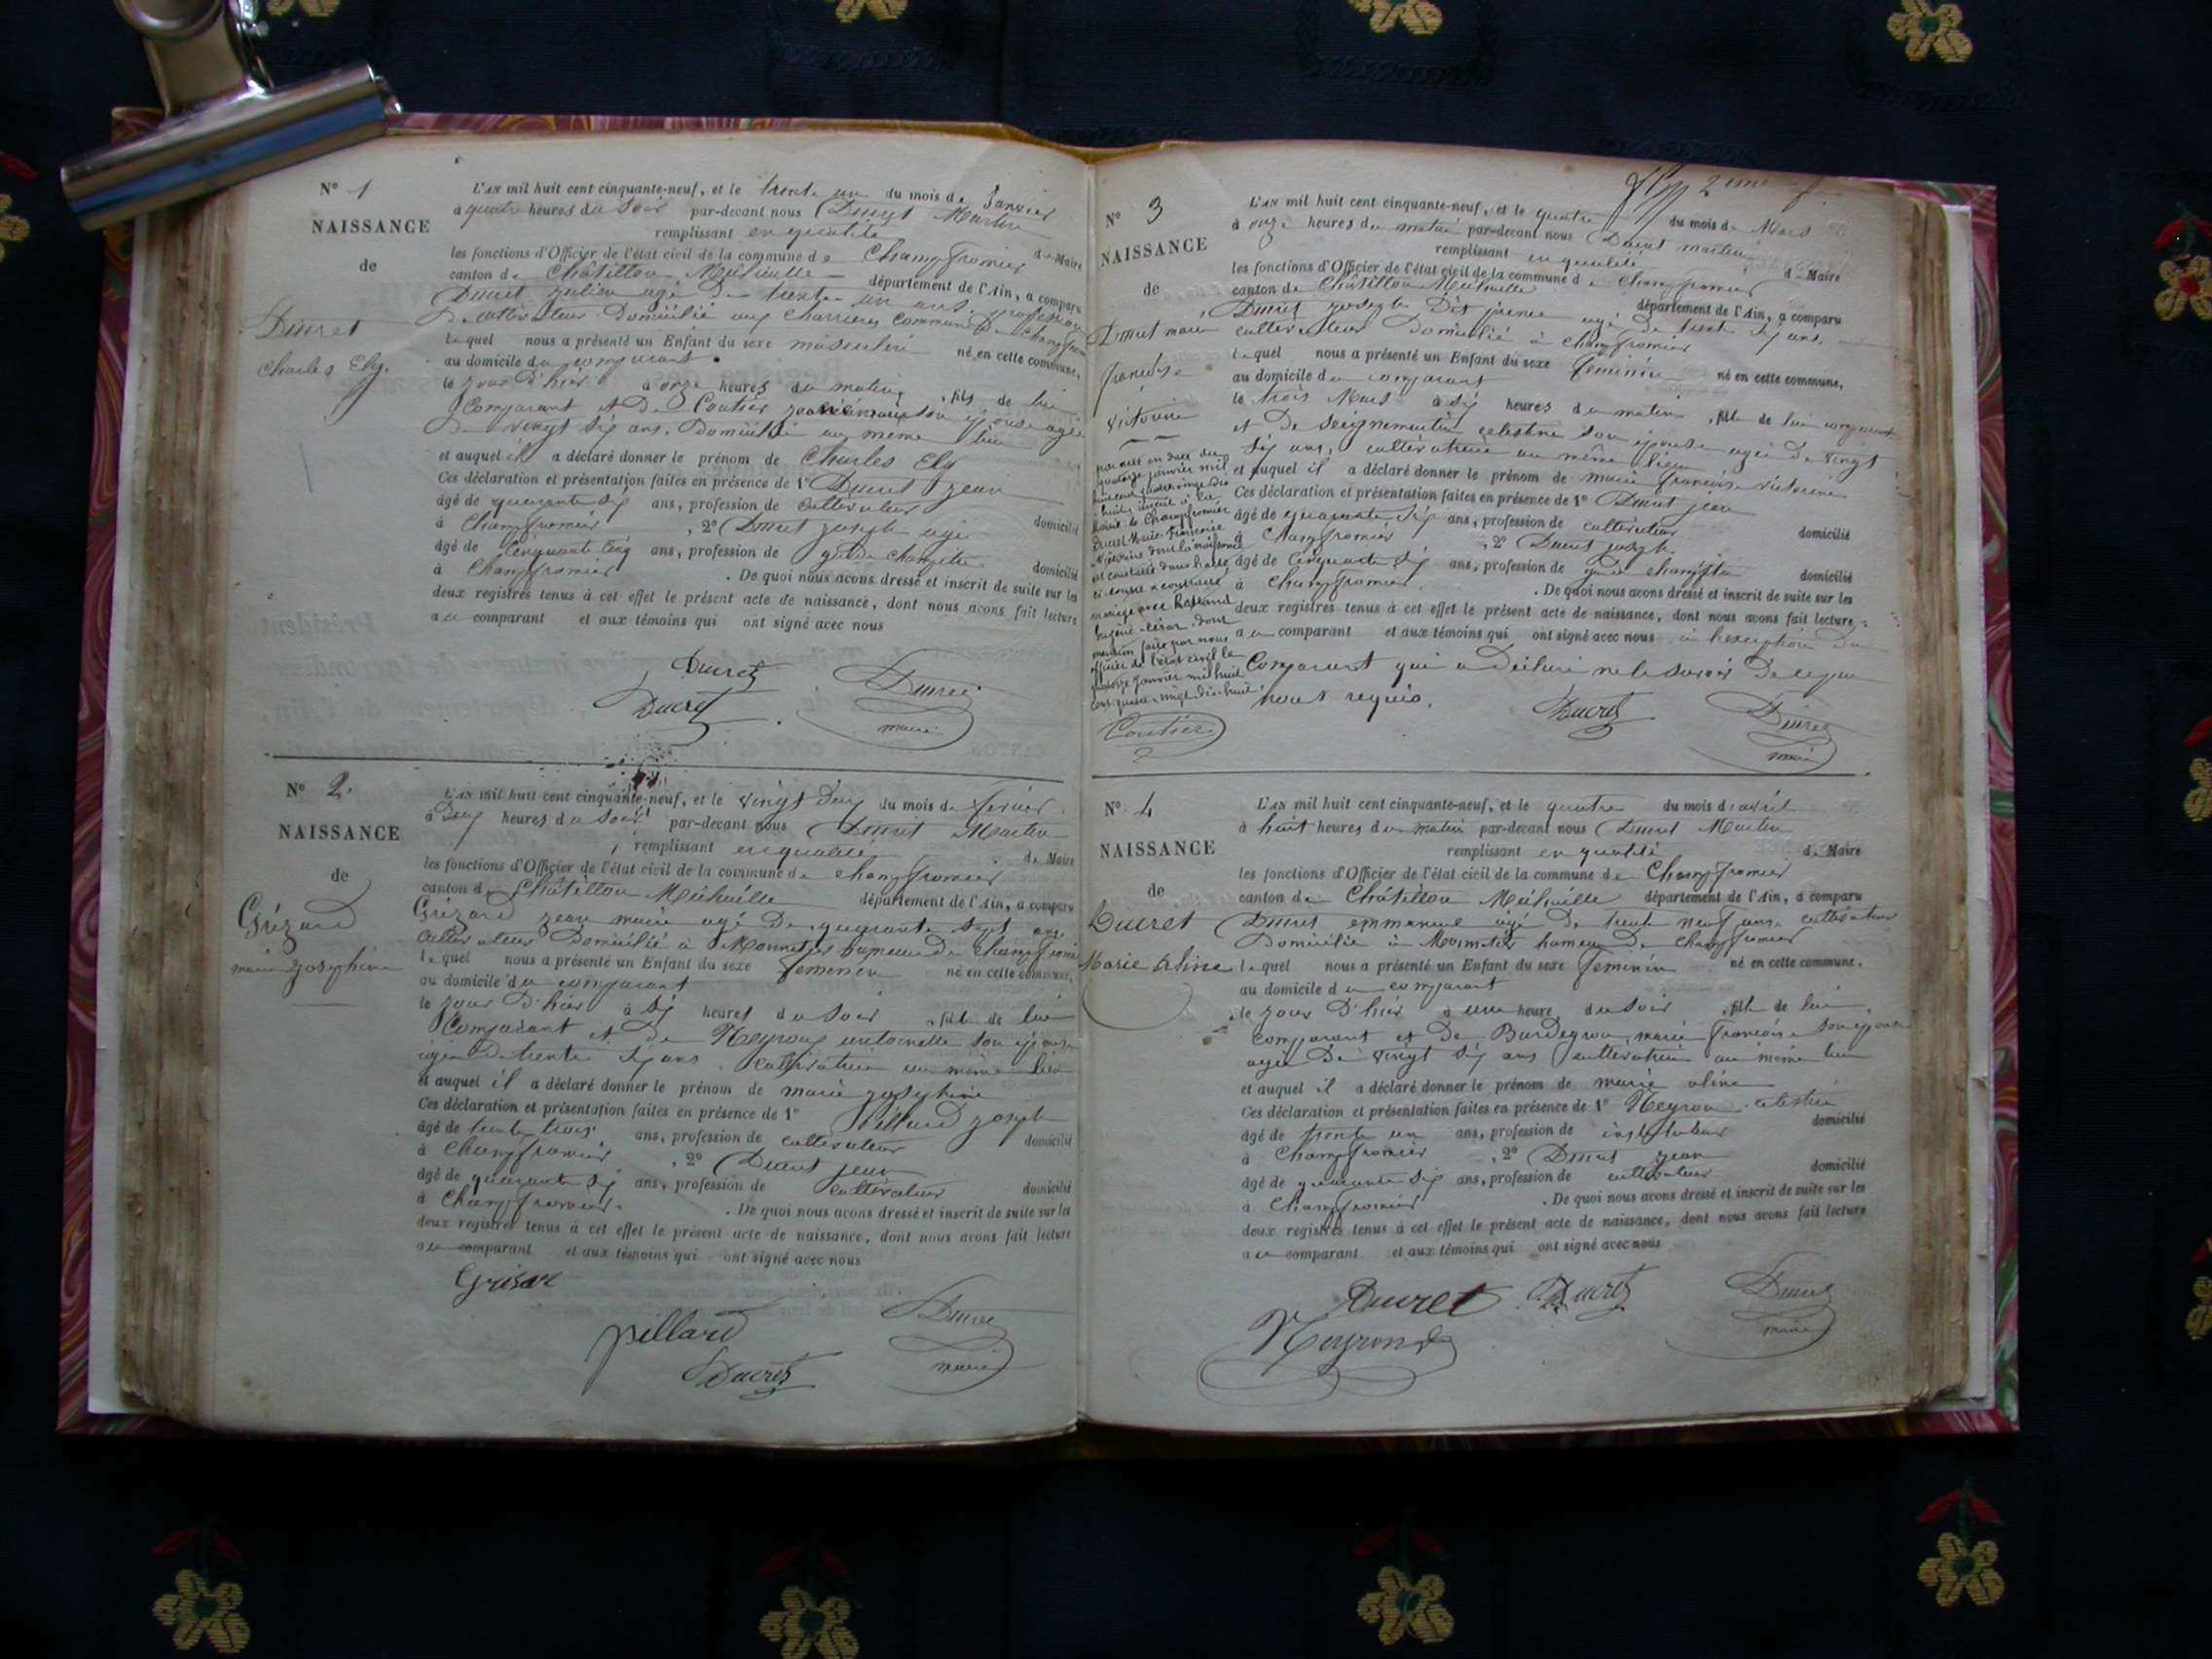 N° 1
NAISSANCE
de
Ducret
Charles Ely.
L'AN mil huit cent cinquante-neuf, et le trente un du mois de Janvier
à quatre heures du soir par-devant nous Ducret Martin
remplissant en qualité de Maire
les fonctions d'Officier de l'état civil de la commune de Champfromier
canton de Châtillon Michaille département de l'Ain, a comparu
Ducret Julien agé de trente un ans, profession
de cultivateur domicilié aux Charrières commune de Champfromier
lequel nous a présenté un Enfant du sexe masculin né en cette commune,
au domicile du comparant
le jour d'hier à onze heures du matin, fils de lui
Comparant et de Coutier son épouse agée
de vingt six ans. Domicilié au même lieu
et auquel il a déclaré donner le prénom de Charles Ely
Ces déclaration et présentation faites en présence de 1° Ducret Jean
âgé de quarante six ans, profession de cultivateur domicilié
à Champfromier, 2° Ducret Joseph agé
âgé de Cinquante cinq ans, profession de garde champêtre domicilié
à Champfromier. De quoi nous avons dressé et inscrit de suite sur les
deux registres tenus à cet effet le présent acte de naissance, dont nous avons fait lecture
au comparant et aux témoins qui ont signé avec nous
Ducret
Ducret
Ducret
maire
N° 2.
NAISSANCE
de
Grézard
marie josephine
L'AN mil huit cent cinquante-neuf, et le vingt deux du mois de fevrier
à Deux heures du soir par-devant nous Ducret Martin
remplissant en qualité de Maire
les fonctions d'Officier de l'état civil de la commune de Champfromier
canton de Châtillon Michaille département de l'Ain, a comparu
Grézard jean marie agé de quarante sept ans
cultivateur domicilié à Monnetier hameau de Champfromier
lequel nous a présenté un Enfant du sexe feminin né en cette commune,
au domicile du comparant
le jour d'hier à six heures du soir, fille de lui
Comparant et de Neyroux antoinette son épouse
agée de trente six ans cultivatrice au même lieu
et auquel il a déclaré donner le prénom de marie josephine
Ces déclaration et présentation faites en présence de 1° Pillard joseph
âgé de trente trois ans, profession de cultivateur domicilié
à Champfromier, 2° Ducret jean
âgé de quarante six ans, profession de cultivateur domicilié
à Champfromier. De quoi nous avons dressé et inscrit de suite sur les
deux registres tenus à cet effet le présent acte de naissance, dont nous avons fait lecture
au comparant et aux témoins qui ont signé avec nous
Grisar
pillard
Ducret
Ducret
maire
2eme
N° 3
NAISSANCE
de
Ducret marie
françoise
victorine
par acte en date du
quatorze janvier mil
huit cent quatre vingt dix
huit, inscrit à la
Mairie de Champfromier
Ducret Marie Françoise
Victorine dont la naissance
est constatée dans l'acte
ci-contre a contracté
mariage avec
dont
mention faite par nous
officier de l'état civil le
quatorze janvier mil huit
cent quatre-vingt-dix-huit
Coutier
L'AN mil huit cent cinquante-neuf, et le quatre du mois de Mars
à onze heures du matin par-devant nous Ducret martin
remplissant en qualité de Maire
les fonctions d'Officier de l'état civil de la commune de Champfromier
canton de Châtillon Michaille département de l'Ain, a comparu
Ducret joseph dit jeune agé de trente six ans,
cultivateur domicilié à Champfromier
lequel nous a présenté un Enfant du sexe feminin né en cette commune,
au domicile du comparant
le trois Mars à six heures du matin, fille de lui comparant
et de Seignemartin celestine son épouse agée de vingt
six ans, cultivatrice au même lieu
et auquel il a déclaré donner le prénom de marie françoise victorine
Ces déclaration et présentation faites en présence de 1° Ducret jean
âgé de quarante six ans, profession de cultivateur domicilié
à Champfromier, 2° Ducret joseph
âgé de Cinquante six ans, profession de garde champêtre domicilié
à Champfromier. De quoi nous avons dressé et inscrit de suite sur les
deux registres tenus à cet effet le présent acte de naissance, dont nous avons fait lecture
au comparant et aux témoins qui ont signé avec nous à l'exception du
Comparant qui a déclaré ne le savoir de ce par
nous requis.
Ducret
Ducret
maire
N° 4
NAISSANCE
de
Ducret
Marie Aline
L'AN mil huit cent cinquante-neuf, et le quatre du mois d'avril
à huit heures du matin par-devant nous Ducret Martin
remplissant en qualité de Maire
les fonctions d'Officier de l'état civil de la commune de Champfromier
canton de Châtillon Michaille département de l'Ain, a comparu
Ducret emmanuel agé de trente neuf ans cultivateur
Domicilié à Monnetier hameau de Champfromier
lequel nous a présenté un Enfant du sexe feminin né en cette commune,
au domicile du comparant
le jour d'hier à une heure du soir, fille de lui
comparant et de Bardegrou marie françoise son épouse
agée de vingt six ans cultivatrice au même lieu
et auquel il a déclaré donner le prénom de marie aline
Ces déclaration et présentation faites en présence de 1° Neyron celestin
âgé de trente un ans, profession de instituteur domicilié
à Champfromier, 2° Ducret jean
âgé de quarante six ans, profession de cultivateur domicilié
à Champfromier. De quoi nous avons dressé et inscrit de suite sur les
deux registres tenus à cet effet le présent acte de naissance, dont nous avons fait lecture
au comparant et aux témoins qui ont signé avec nous
Ducret
Ducret
Ducret
maire
Neyrond